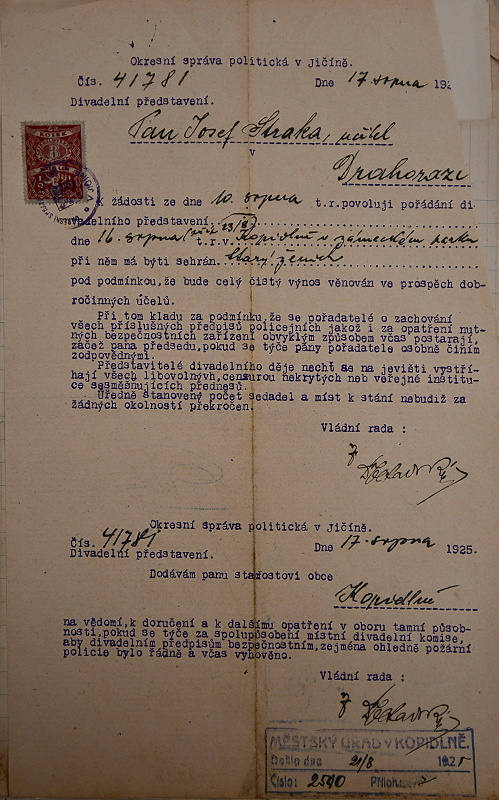 Okresní správa politická v Jičíně.
Čís. 41781 Dne 17 srpna 192
Divadelní představení.
Pan Josef Straka, učitel
v
Drahorazi
KOLEK
K žádosti ze dne 10. srpna t.r.povoluji pořádání di
vadelního představení
dne 16. srpna 23/8 t.r.v. Kopidlně v zámeckém parku
při něm má býti sehrán Starý ženich
pod podmínkou,že bude celý čistý výnos věnován ve prospěch dob-
ročinných účelů.
Při tom kladu za podmínku,že se pořadatelé o zachování
všech příslušných předpisů policejních jakož i za opatření nut-
ných bezpečnostních zařízení obvyklým způsobem včas postarají,
začež pana předsedu,pokud se týče pány pořadatele osobně činím
zodpovědnými.
Představitelé divadelního děje nechť se na jevišti vystří-
hají všech libovolných,censurou nekrytých neb veřejné instituc-
ce sesměšnujících přednesů.
Úředně stanovený počet sedadel a míst k stání nebudiž za
žádných okolností překročen.
Vládní rada :
Okresní správa politická v Jičíně.
Čís. 41781 Dne 17. srpna 1925.
Divadelní představení.
Dodávám panu starostovi obce
Kopidlno
na vědomí,k doručení a k dalšímu opatření v oboru tamní působ-
nosti,pokud se týče za spolupůsobení místní divadelní komise,
aby divadelním předpisům bezpečnostním,zejména ohledně požární
policie bylo řádně a včas vyhověno.
Vládní rada :
MĚSTSKÝ ÚŘAD V KOPIDLNĚ.
Došlo dne 21/8 1925
Číslo: 2590 Příloh: